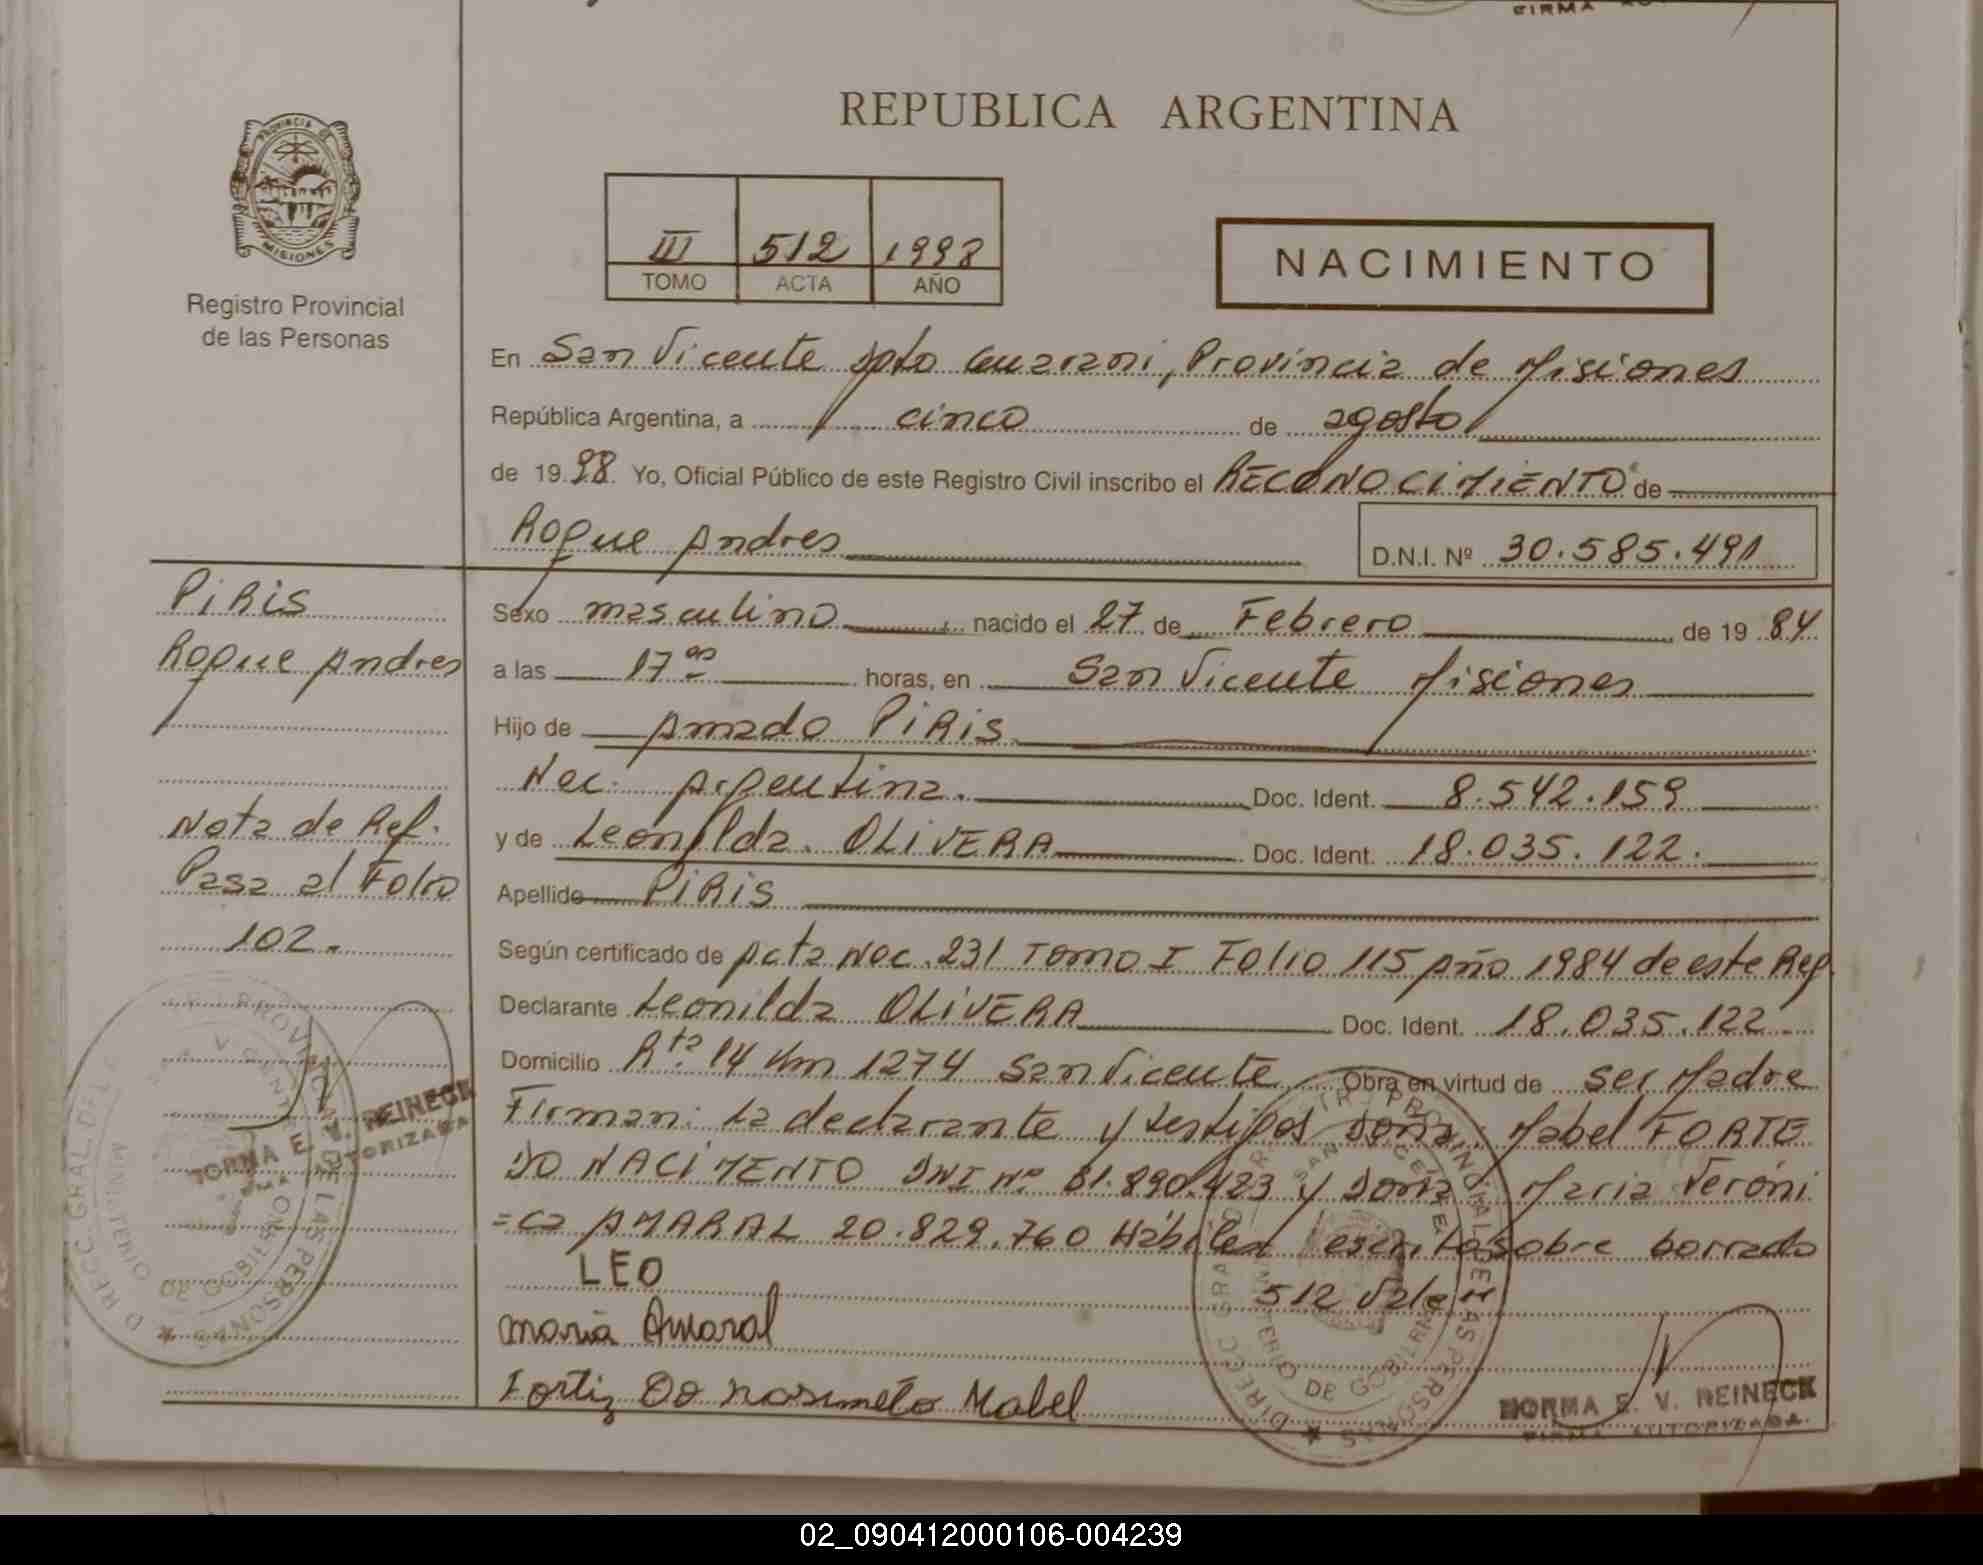 FIRMA
REPUBLICA ARGENTINA
PROVINCIA DE
MISIONES
Registro Provincial
de las Personas
III 512 1998
TOMO ACTA AÑO
NACIMIENTO
En San Vicente Dpto Guarani, Provincia de Misiones
República Argentina, a cinco de agosto
de 1998. Yo, Oficial Público de este Registro Civil inscribo el RECONOCIMIENTO de
Roque Andres
D.N.I. Nº 30.585.491
PIRIS
Roque Andres
Nota de Ref.
Pasa al Folio
102.
Sexo masculino nacido el 27 de Febrero de 1984
a las 17 00 horas, en San Vicente Misiones
Hijo de Amado PIRIS
Nac. Argentina. Doc. Ident. 8.542.159
y de Leonilda. OLIVERA Doc. Ident. 18.035.122.
Apellido PIRIS
Según certificado de Acta Nac. 231 Tomo I Folio 115 Año 1984 de este Reg.
Declarante Leonilda OLIVERA Doc. Ident. 18.035.122
Domicilio Rta. 14 Km 1274 San Vicente Obra en virtud de ser Madre
Firman: La declarante y testigos Doña: Mabel FORTE
DO NACIMENTO DNI Nº 81.890.423 y Doña Maria Veróni
=ca AMARAL 20.829.760 Hábiles escrito sobre borrado
512 Vale
LEO
maria Amaral
Fortiz Do nasimeto Mabel
NORMA E. V. REINECK
FIRMA AUTORIZADA
DIRECC GRAL DEL REGISTRO PROVINCIAL DE LAS PERSONAS
MINISTERIO DE GOBIERNO
SAN VICENTE
NORMA E. V. REINECK
FIRMA AUTORIZADA
02_090412000106-004239